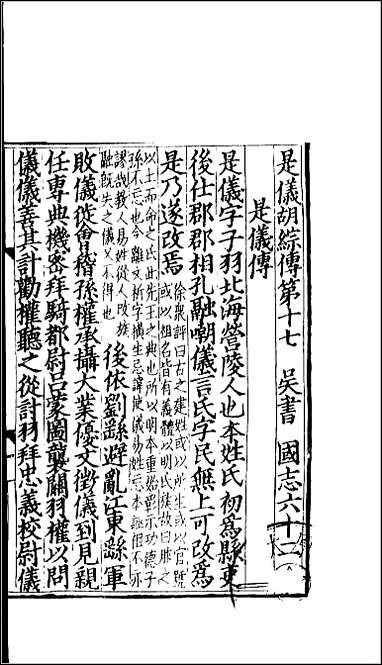 是儀胡綜傳第十七　吳書　國志六十二
是儀傳
是儀字子羽北海營陵人也本姓氏初爲縣吏
後仕郡郡相孔融嘲儀言氏字民無上可改爲
是乃遂改焉
徐衆評曰古之建姓或以所生或以官號
或以祖名皆有義體以明氏族故曰胙之
以土而命之氏此先王之典也所以明本重始彰示功德子
孫不忘也今離文析字橫生忌諱使儀易姓忘本誣祖不亦
謬哉教人易姓從人改族
融既失之儀又不得也
後依劉繇避亂江東繇軍
敗儀徙會稽孫權承攝大業優文徵儀到見親
任專典機密拜騎都尉呂蒙圖襲關羽權以問
儀儀善其計勸權聽之從討羽拜忠義校尉儀